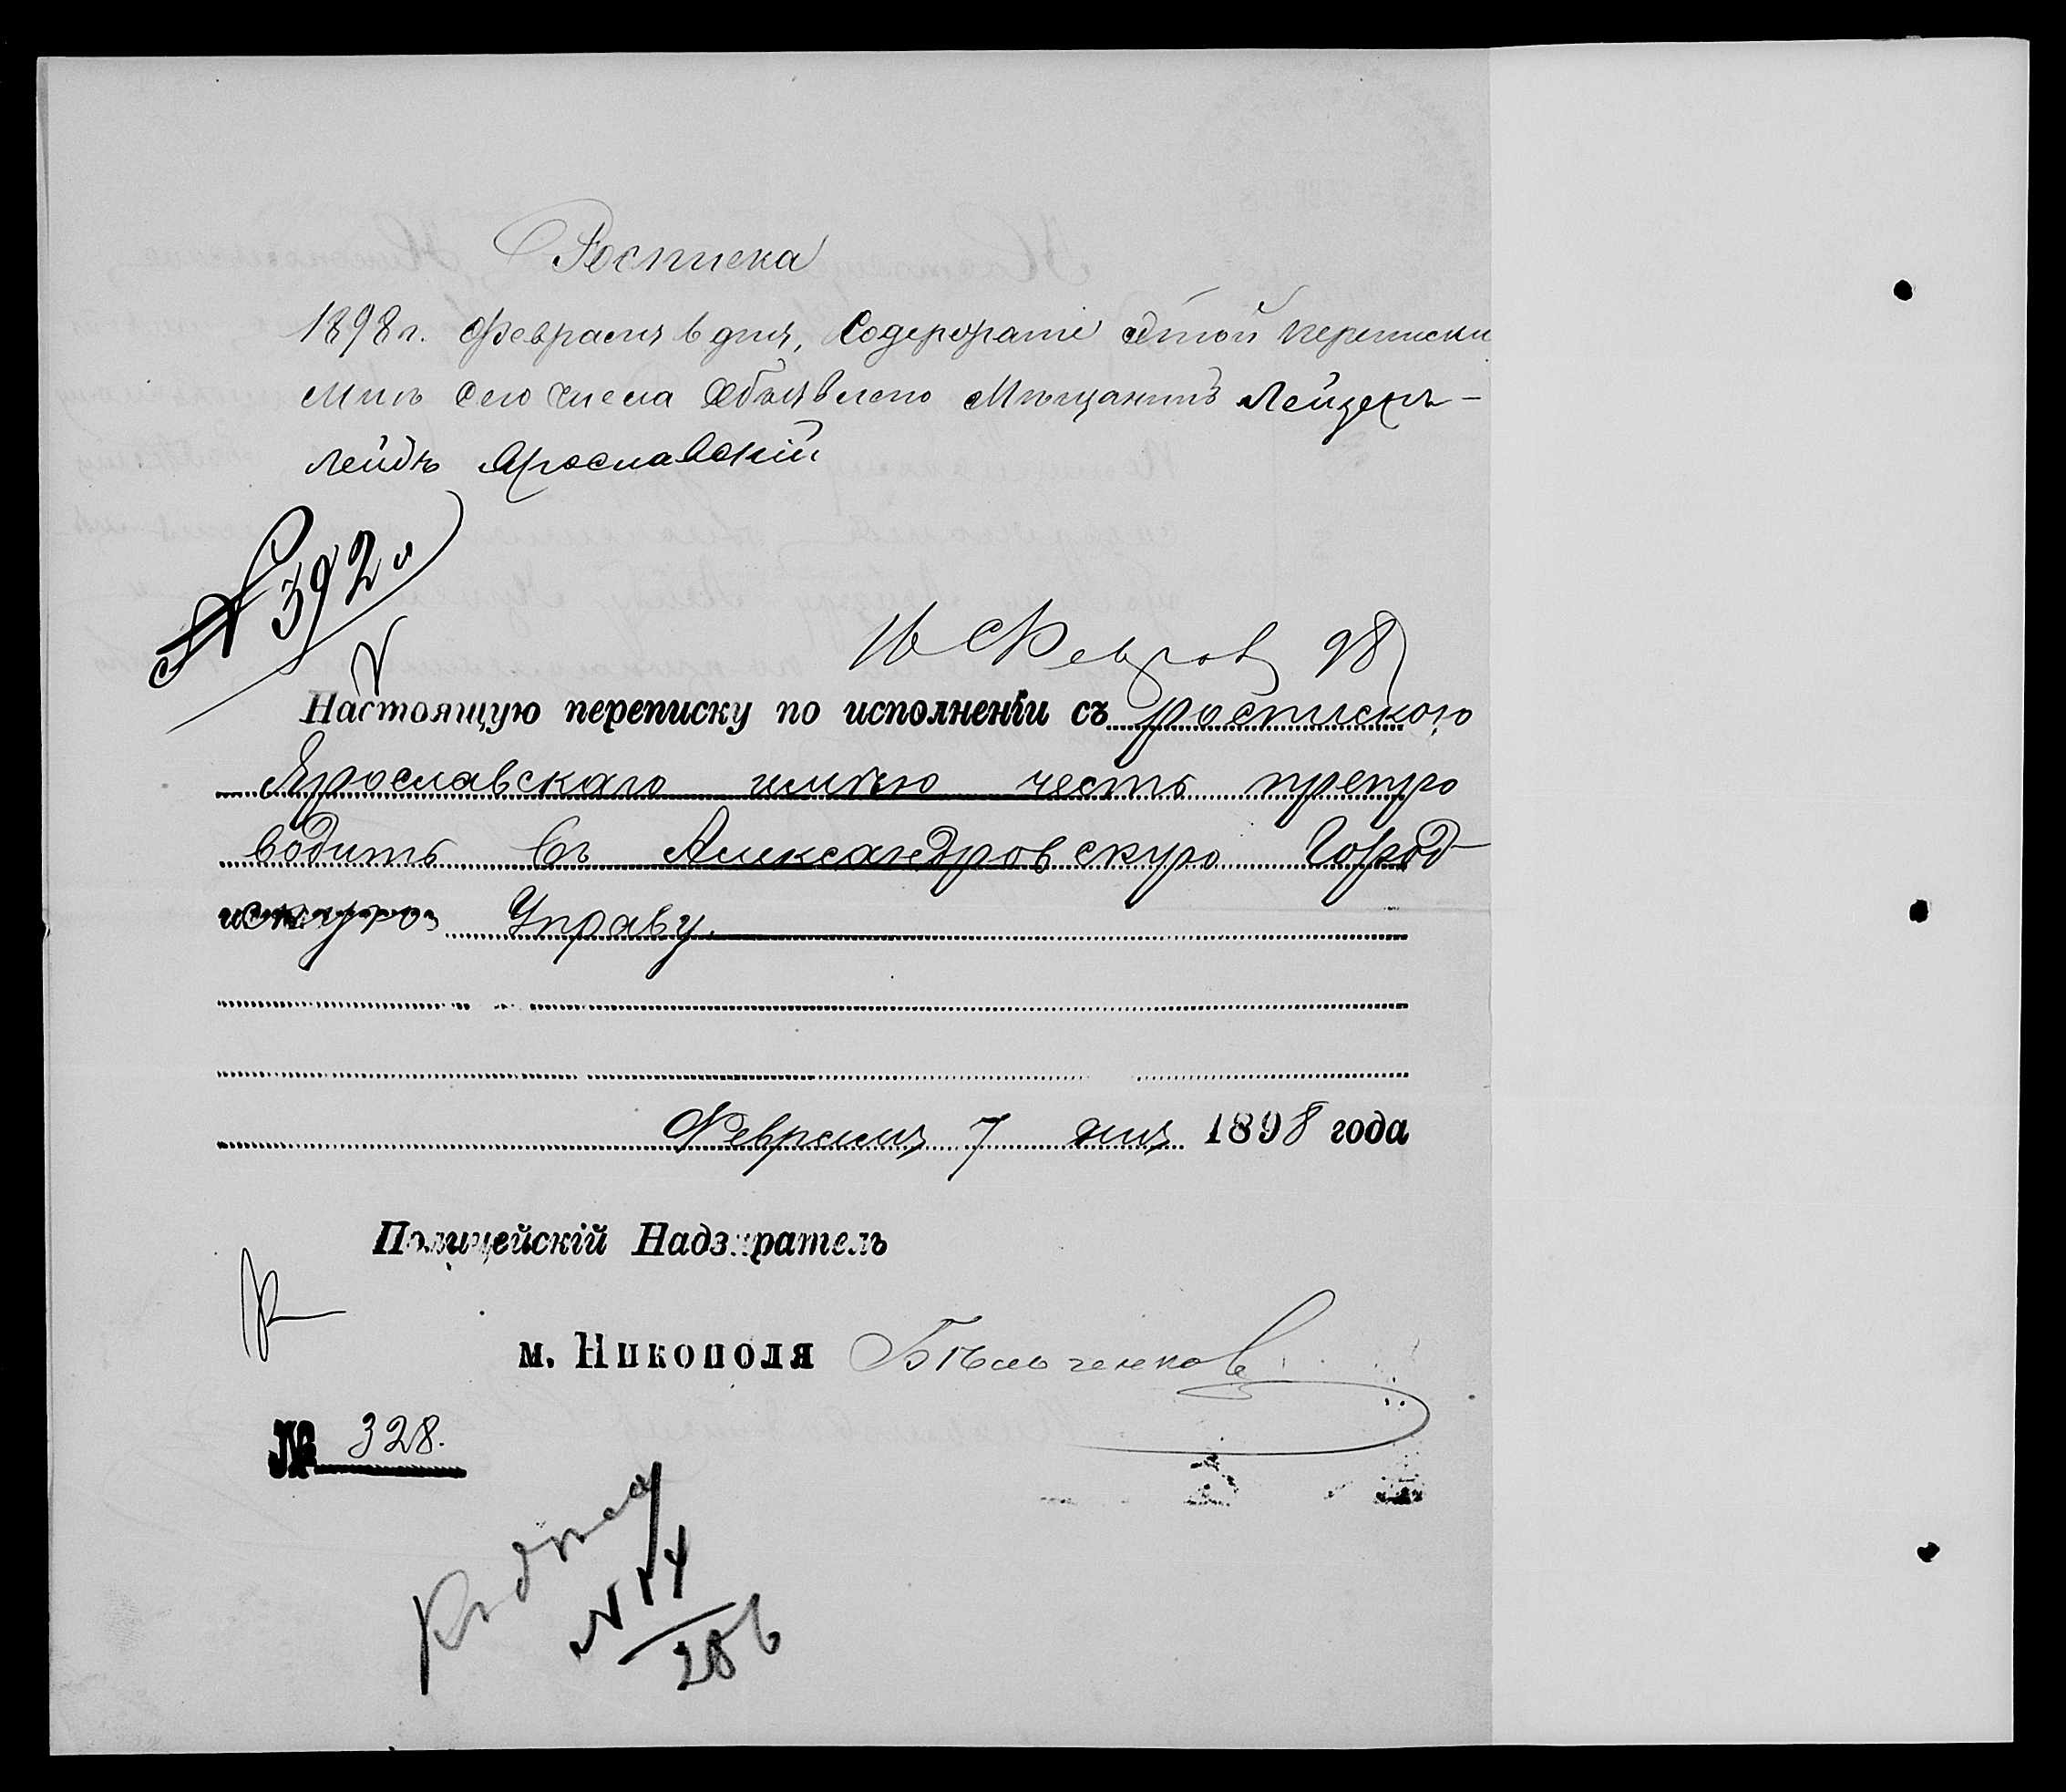 Росписка
1898 г. Февраля 6 дня, Содержание этой переписки
Мнѣ Сего числа Объявлено Мѣщанинъ Лейзеръ-
Лейдъ Ярославскій
№ 392
16 Февр 98
Настоящую переписку по исполненіи съ роспискою
Ярославскаго имѣю честь препро
водить въ Александровскую Город
скую Управу.
Февраля 7 дня 1898 года
Полицейскій Надзиратель
м. Никополя Бѣльченков
№ 328.
К дѣлу
N 14
286